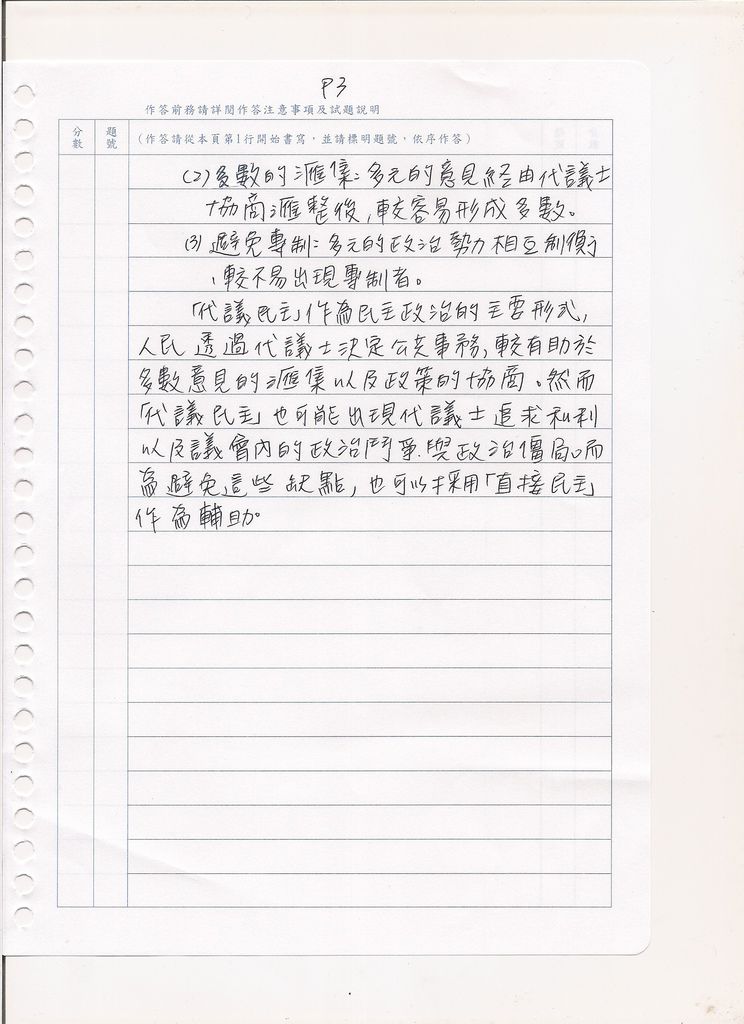 P3
作答前務請詳閱作答注意事項及試題說明
分數
題號
(作答請從本頁第1行開始書寫，並請標明題號，依序作答)
(2)多數的滙集：多元的意見經由代議士
協商滙整後，較容易形成多數。
(3)避免專制：多元的政治勢力相互制衡
，較不易出現專制者。
「代議民主」作為民主政治的主要形式，
人民透過代議士決定公共事務，較有助於
多數意見的滙集以及政策的協商。然而
「代議民主」也可能出現代議士追求私利
以及議會內的政治鬥爭與政治僵局。而
為避免這些缺點，也可以採用「直接民主」
作為輔助。